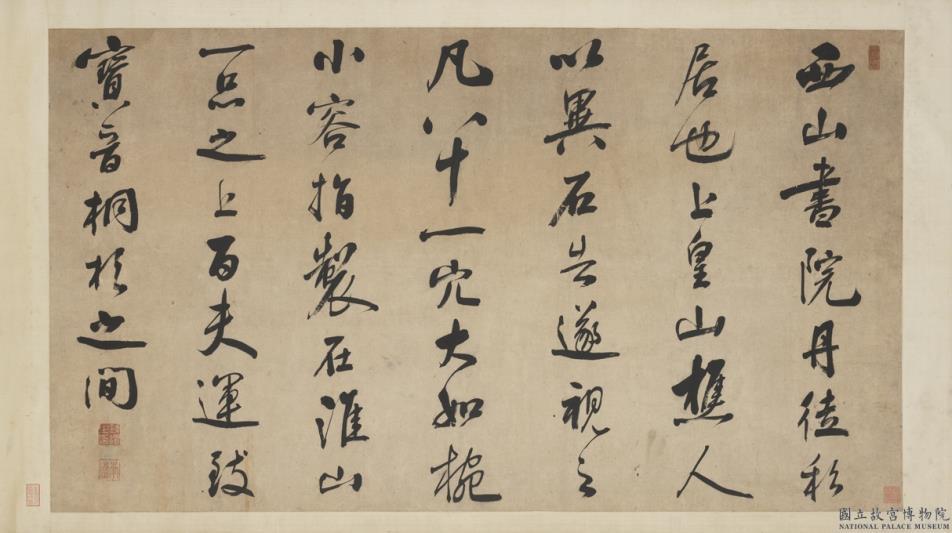 西山書院丹徒私
居也上皇山樵人
以異石告遂視之
凡八十一穴大如椀
小容指製在淮山
一品之上百夫運致
寶晉桐杉之間
國立故宮博物院
NATIONAL PALACE MUSEUM